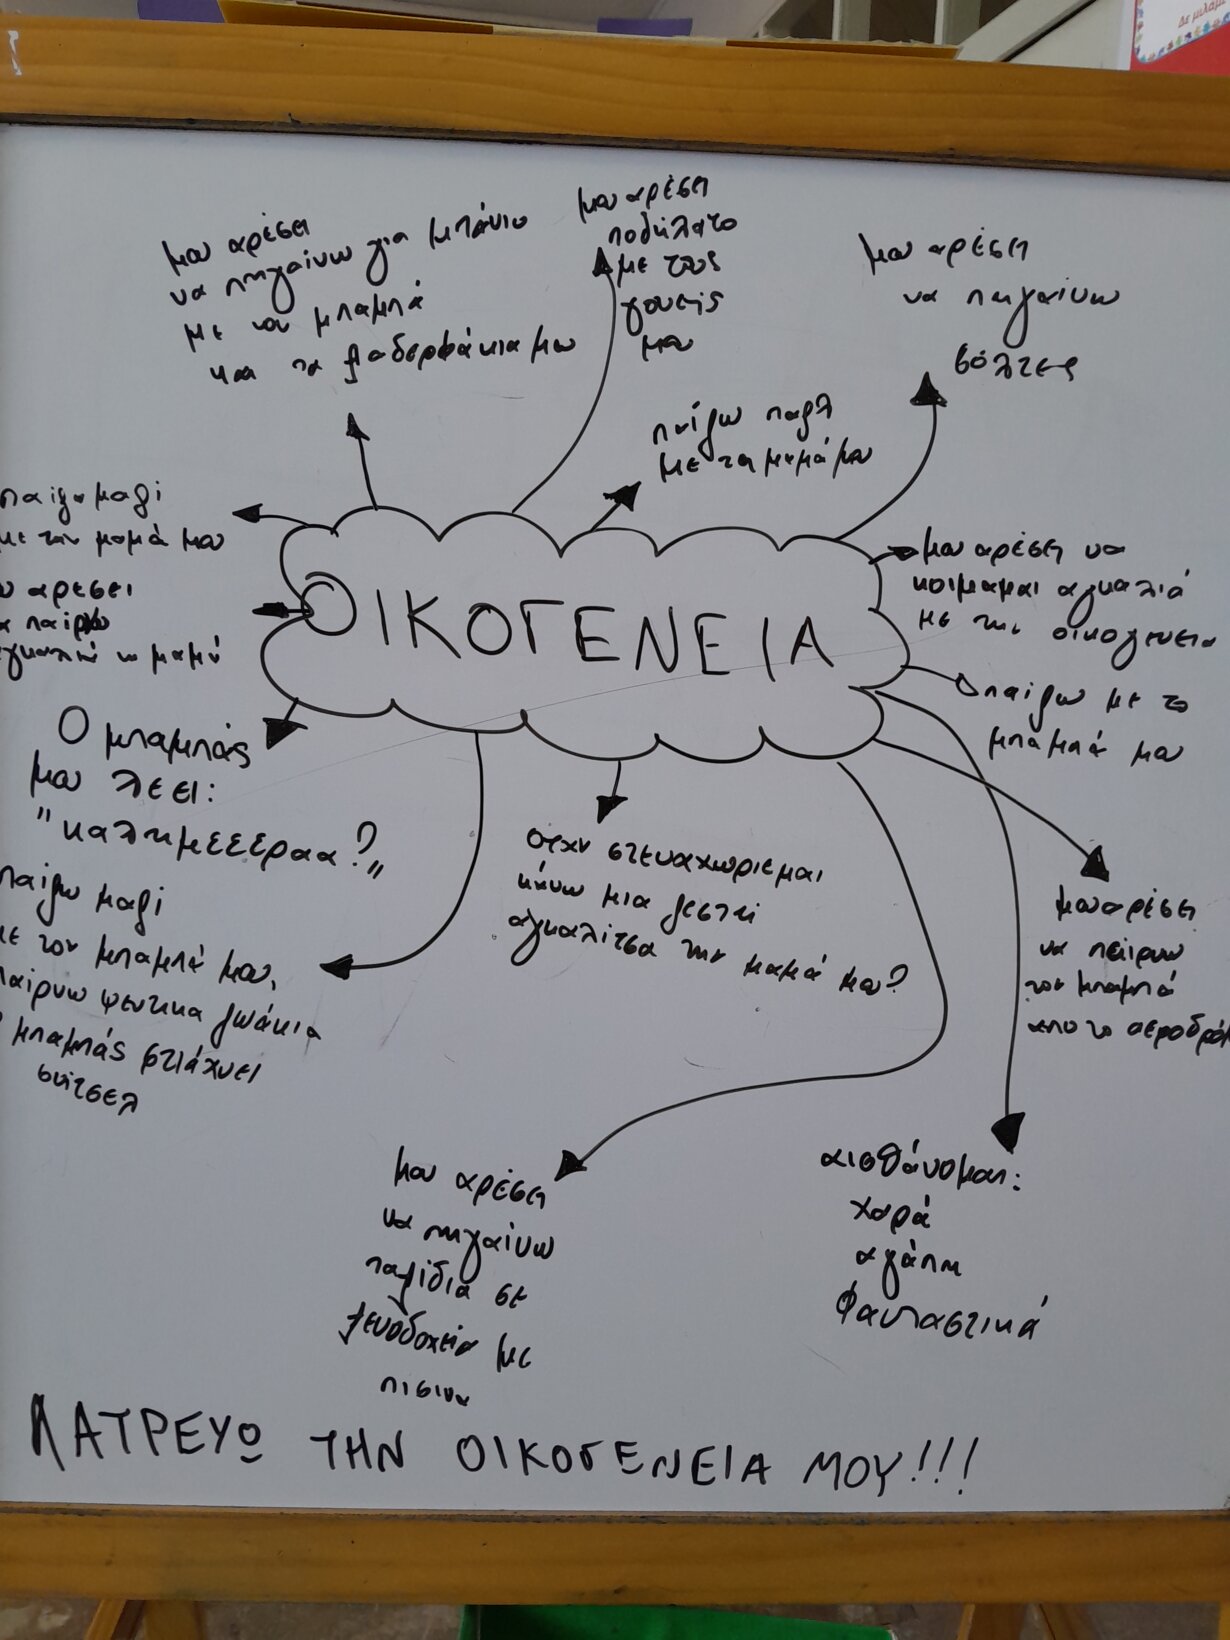 Δε μιλάμε
μου αρέσει
να πηγαίνω για μπάνιο
με τον μπαμπά
και τα ξαδερφάκια μου
μου αρέσει
ποδήλατο
με τους
γονείς
μου
μου αρέσει
να πηγαίνω
βόλτες
παίζω παζλ
με τη μαμά μου
παίζω μαζί
με την μαμά μου
αρέσει
παίρνω
αγκαλιά τη μαμά
ΟΙΚΟΓΕΝΕΙΑ
μου αρέσει να
κοιμάμαι αγκαλιά
με την οικογένεια
παίζω με το
μπαμπά μου
Ο μπαμπάς
μου λέει:
"καλημεεεραα?"
παίζω μαζί
με τον μπαμπά μου,
παίρνω ψεύτικα ζωάκια
μπαμπάς φτιάχνει
σνίτσελ
όταν στεναχωριέμαι
κάνω μια ζεστή
αγκαλίτσα την μαμά μου?
μου αρέσει
να παίρνω
τον μπαμπά
από το
μου αρέσει
να πηγαίνω
ταξίδια σε
ξενοδοχεία με
πισίνα
αισθάνομαι:
χαρά
αγάπη
φανταστικά
ΛΑΤΡΕΥΩ ΤΗΝ ΟΙΚΟΓΕΝΕΙΑ ΜΟΥ!!!